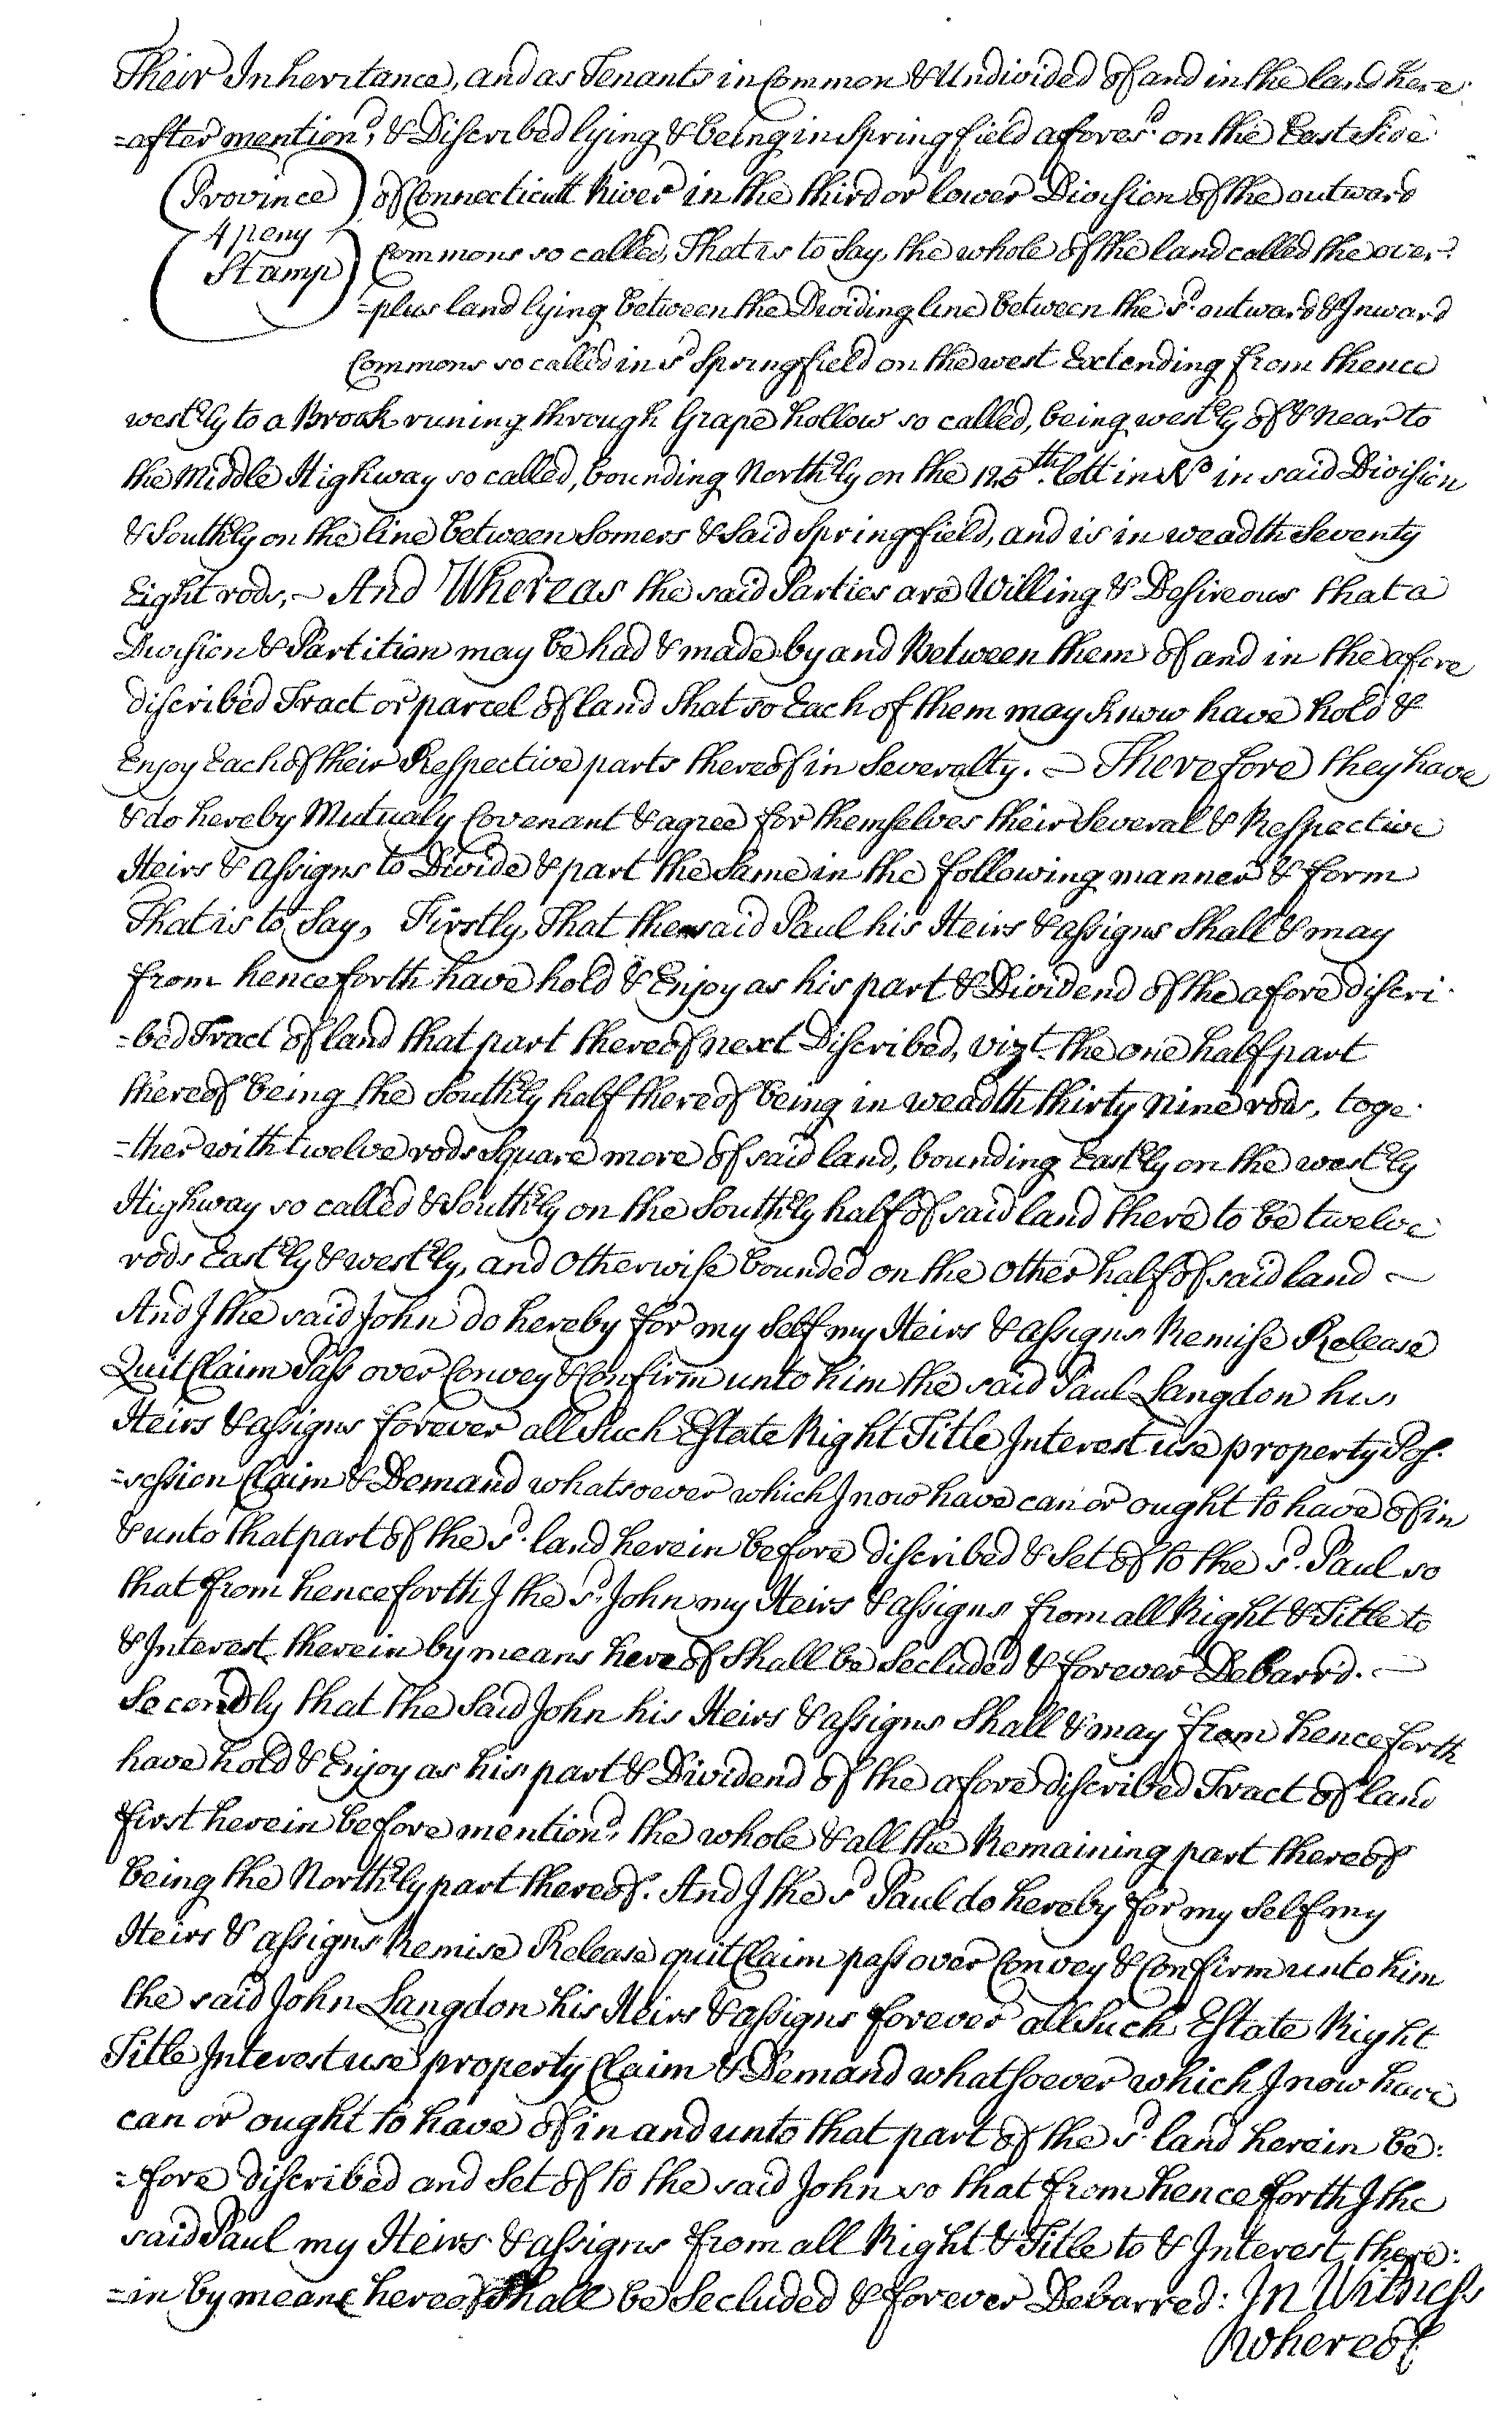 Their Inheritance, and as Tenants in Common & Undivided of and in the land here
=after mention'd, & Discribed lying & being in Springfield afores.d on the East Side
(Province) of Connecticutt River in the third or lower Division of the outward
4 peny
Stamp
Commons so called, That is to Say, the whole of the land called the over-
=plus land lying between the Dividing line between the s.d outward & Inward
Commons so called in s.d Springfield on the west Extending from thence
westerly to a Brook runing through Grape hollow so called, being westerly of & near to
the Middle Highway so called, bounding Northerly on the 125th. lott in No in said Division
& Southerly on the line between Somers & Said Springfield, and is in weadth Seventy
Eight rods, ~ And Whereas the said Parties are Willing & Desireous that a
Division & Partition may be had & made by and Between them of and in the afore
discribed Tract or parcel of land that so Each of them may know have hold &
Enjoy Each of their Respective parts thereof in Severalty. ~ Therefore they have
& do hereby Mutualy Covenant & agree for themselves their Several & Respective
Heirs & assigns to Divide & part the Same in the following manner & form
That is to Say, Firstly, That the said Paul his Heirs & assigns Shall & may
from henceforth have hold & Enjoy as his part & Dividend of the afore discri-
=bed Tract of land that part thereof next Discribed, vizt. the one half part
thereof being the Southerly half thereof being in weadth thirty nine rods, toge-
=ther with twelve rods Square more of said land, bounding Easterly on the westerly
Highway so called & Southerly on the Southerly half of said land there to be twelve
rods Easterly & westerly, and otherwise bounded on the other half of said land ~
And I the said John do hereby for my Self my Heirs & assigns Remise Release
Quit Claim Pass over Convey & Confirm unto him the said Paul Langdon his
Heirs & assigns forever all Such Estate Right Title Interest use property Pos-
=session Claim & Demand whatsoever which I now have can or ought to have of in
& unto that part of the s.d land herein before discribed & Set of to the s.d Paul so
that from henceforth I the s.d John my Heirs & assigns from all Right & Title to
& Interest therein by means hereof Shall be Secluded & forever Debarr'd. ~
Secondly that the Said John his Heirs & assigns Shall & may from henceforth
have hold & Enjoy as his part & Dividend of the afore discribed Tract of land
first herein before mention'd, the whole & all the Remaining part thereof
being the Northerly part thereof. And I the s.d Paul do hereby for my Self my
Heirs & assigns Remise Release quit Claim pass over Convey & Confirm unto him
the said John Langdon his Heirs & assigns forever all Such Estate Right
Title Interest use property Claim & Demand whatsoever which I now have
can or ought to have of in and unto that part of the s.d land herein be:
=fore discribed and Set of to the said John so that from henceforth I the
said Paul my Heirs & assigns from all Right & Title to & Interest there:
=in by means hereof Shall be Secluded & forever Debarred: In Witness
whereof